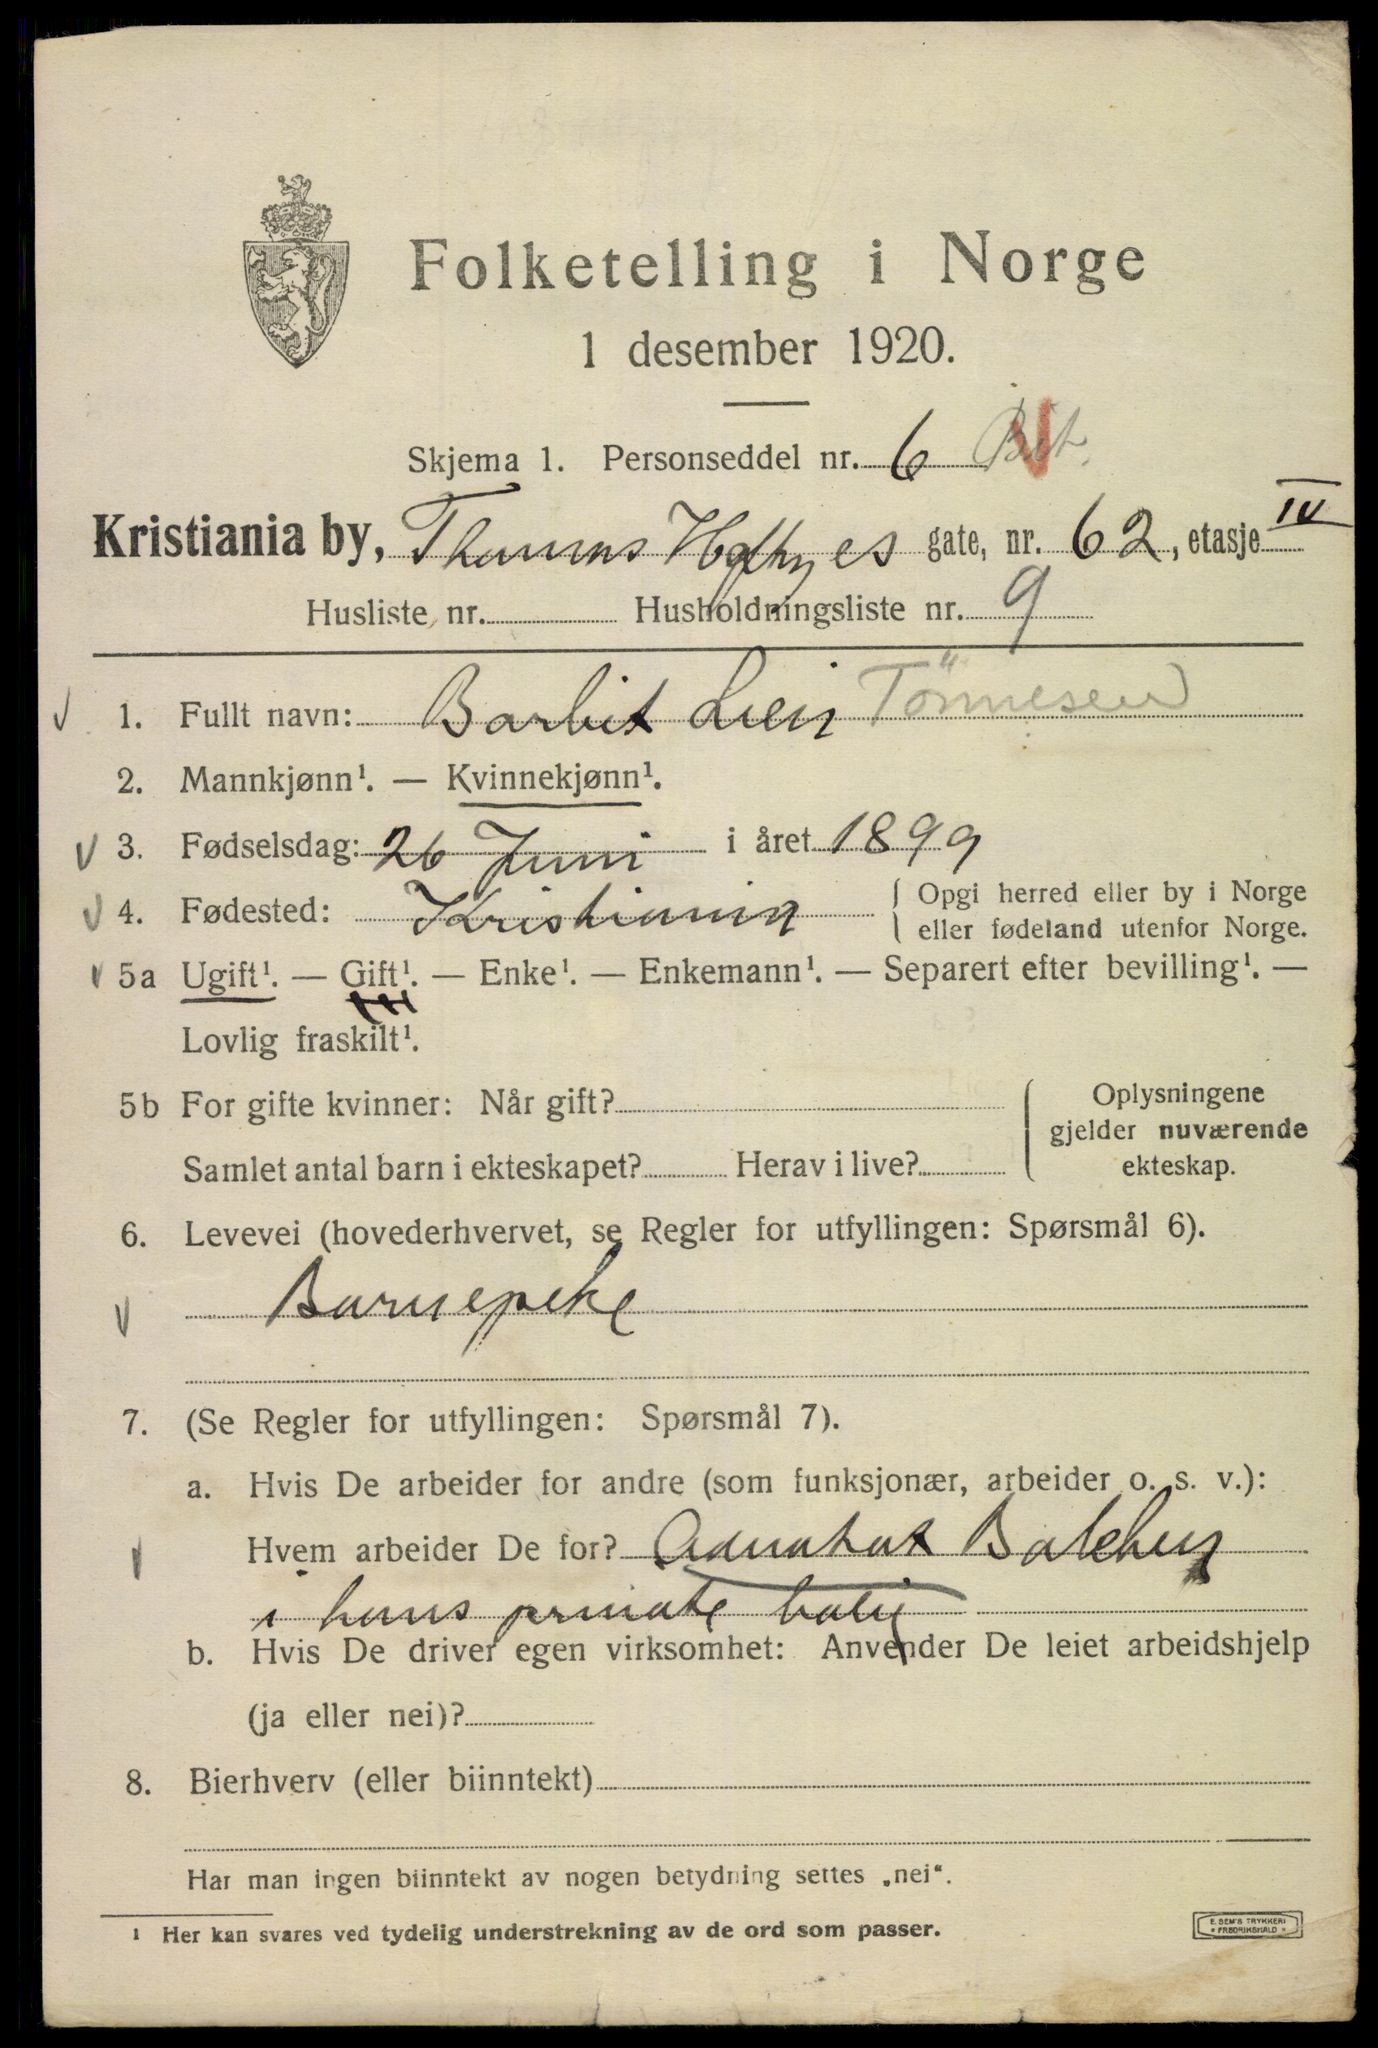 Folketelling i Norge
1 desember 1920.
Skjema 1. Personseddel nr. 6
Kristiania by, Thomas Heftyes gate, nr. 62, etasje IV
Husliste nr. Husholdningsliste nr. 9
1. Fullt navn: Borbit Lien Tönnesen
2. Mannkjønn¹. — Kvinnekjønn¹.
3. Fødselsdag: 26 Juni i året 1899
4. Fødested: Kristiania { Opgi herred eller by i Norge
eller fødeland utenfor Norge.
5a Ugift¹. — Gift¹. — Enke¹. — Enkemann¹. — Separert efter bevilling¹. —
Lovlig fraskilt¹.
5b For gifte kvinner: Når gift?
Samlet antal barn i ekteskapet? Herav i live?
Oplysningene
gjelder nuværende
ekteskap.
6. Levevei (hovederhvervet, se Regler for utfyllingen: Spørsmål 6).
Barnepike
7. (Se Regler for utfyllingen: Spørsmål 7).
a. Hvis De arbeider for andre (som funksjonær, arbeider o. s. v.):
Hvem arbeider De for? Advokat Balchen
i hans private bolig
b. Hvis De driver egen virksomhet: Anvender De leiet arbeidshjelp
(ja eller nei)?
8. Bierhverv (eller biinntekt)
Har man ingen biinntekt av nogen betydning settes „nei“.
¹ Her kan svares ved tydelig understrekning av de ord som passer.
E. SEM'S TRYKKERI
* FREDRIKSHALD *